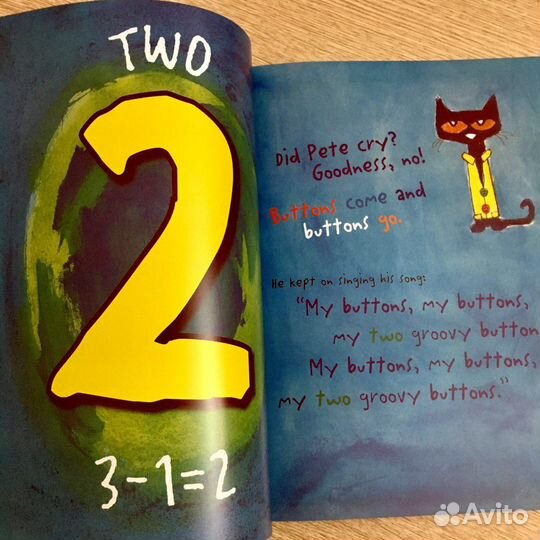 TWO
2
3-1=2
Did Pete cry?
Goodness, no!
Buttons come and
buttons go.
He kept on singing his song:
"My buttons, my buttons,
my two groovy button
My buttons, my buttons,
my two groovy buttons."
Avito